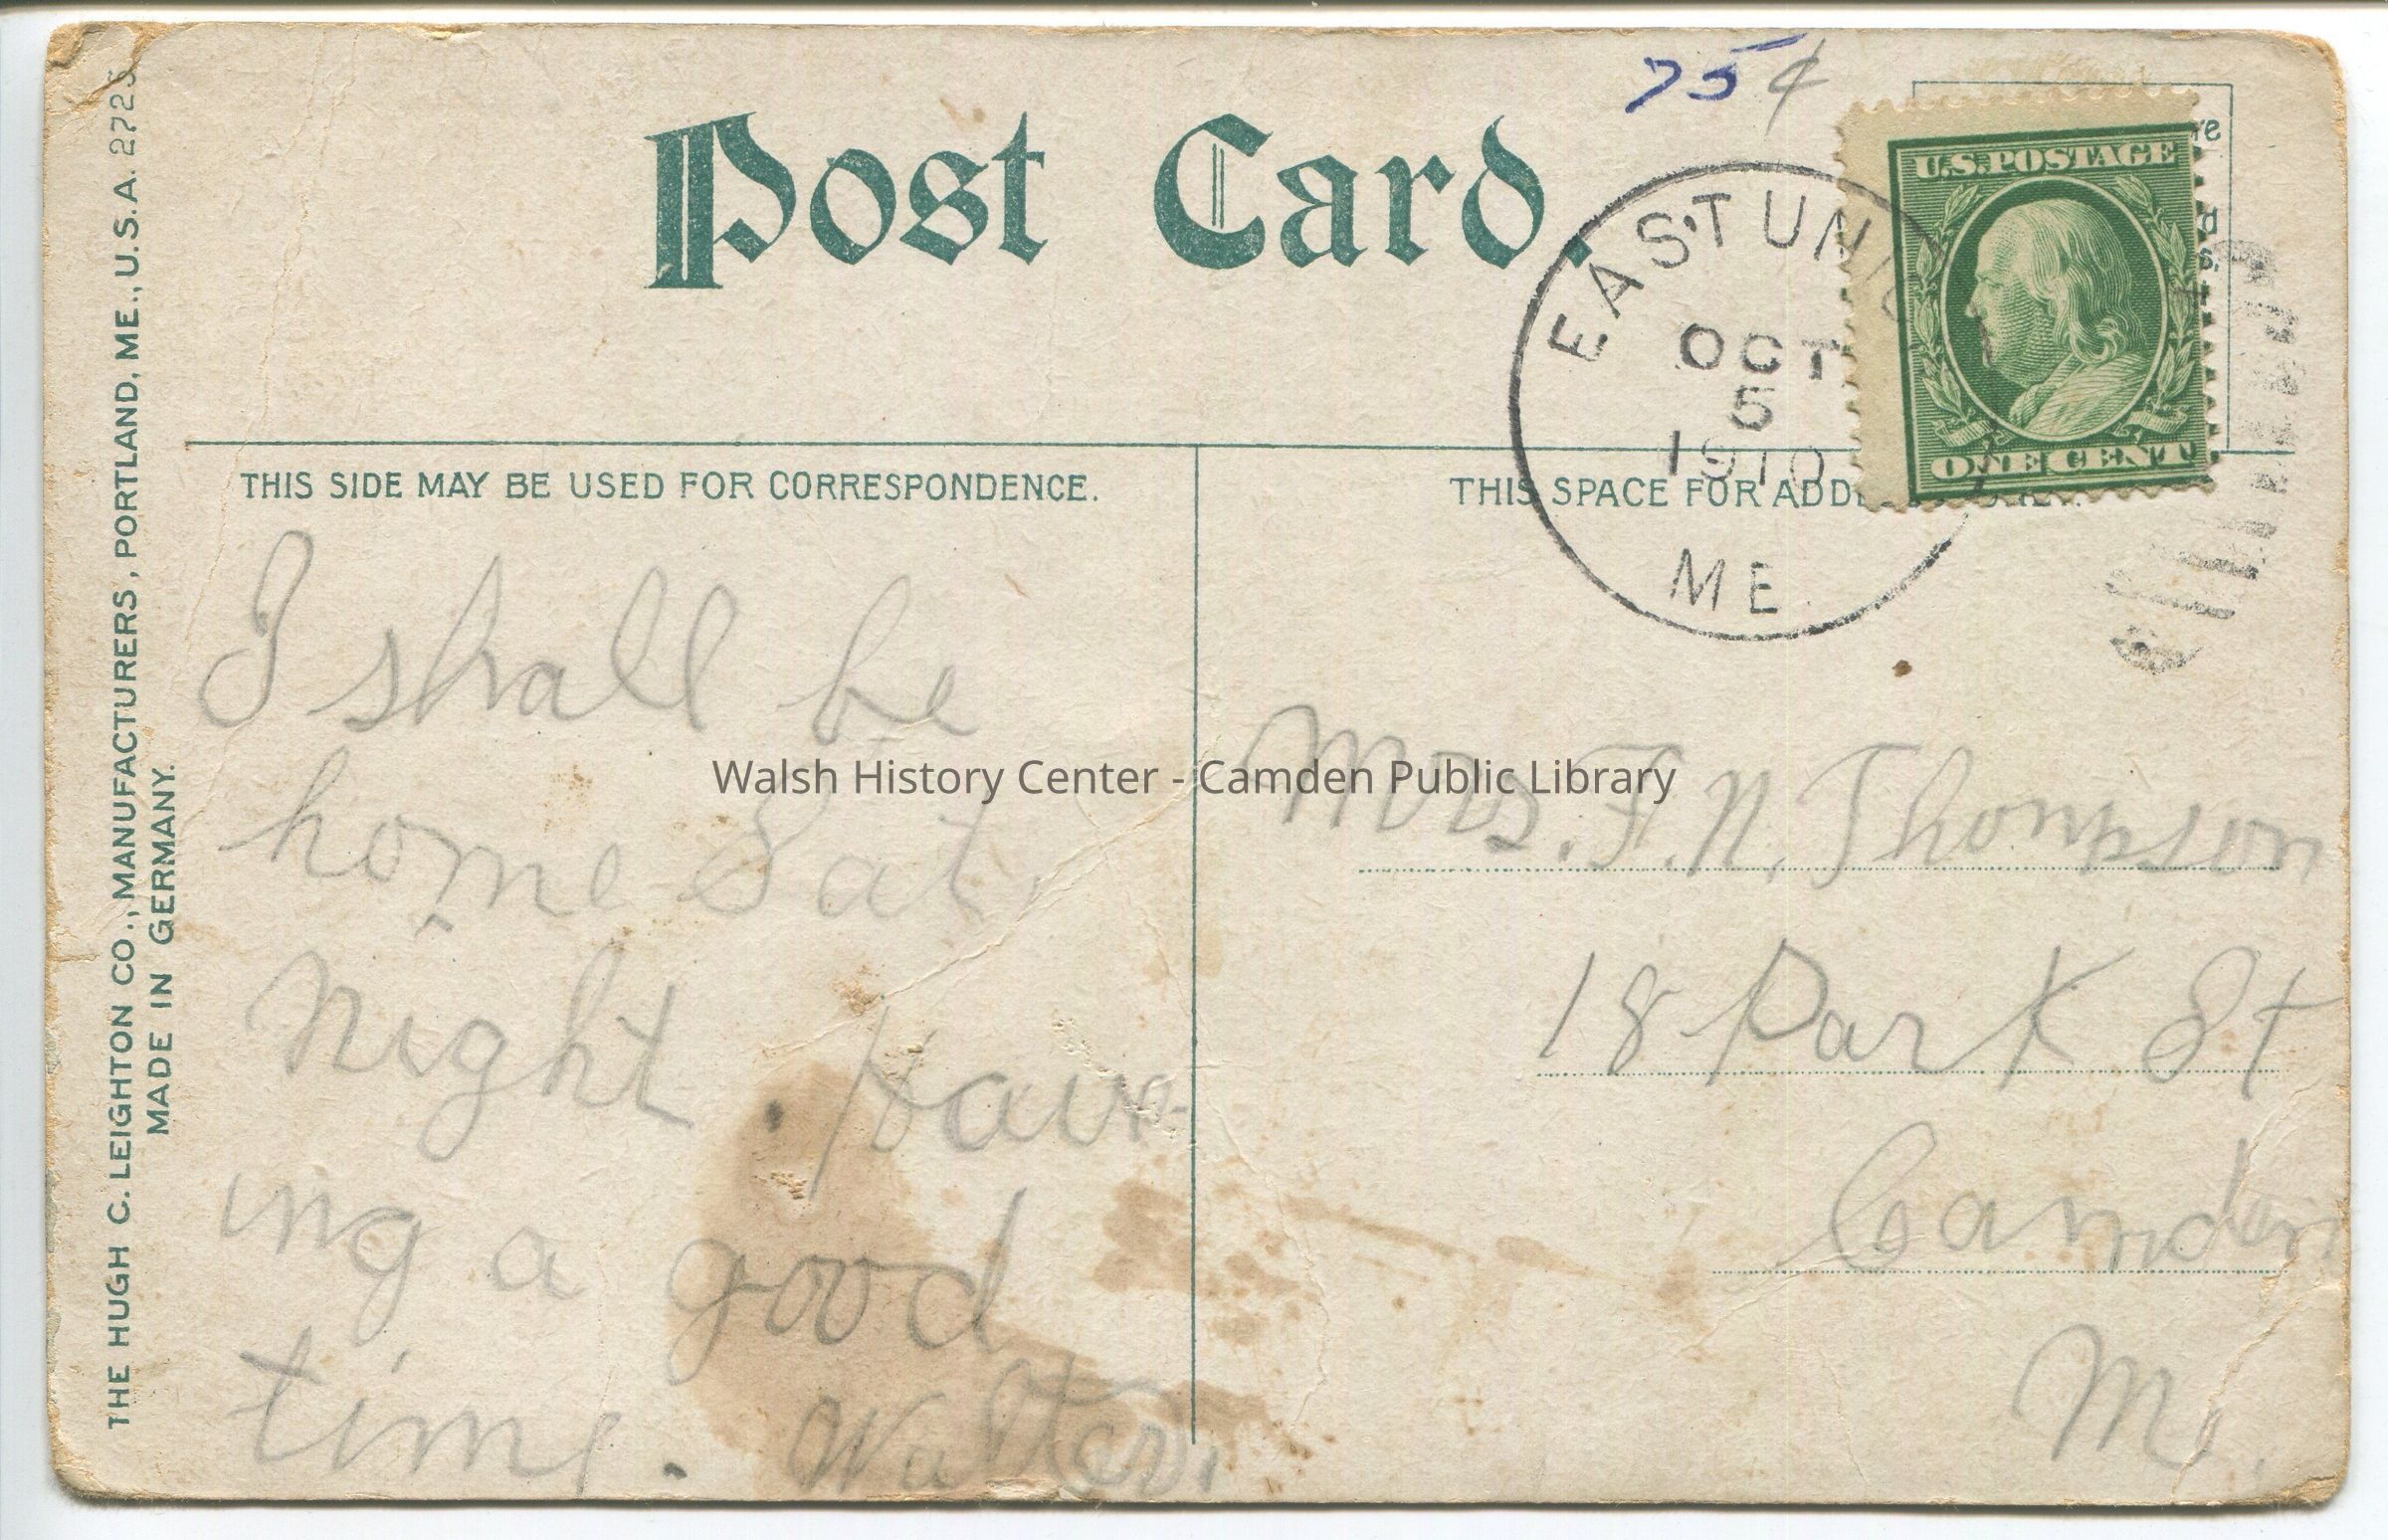 75¢
Post Card.
U.S. POSTAGE
ONE CENT
EAST UNIO
OCT
5
1910
ME.
THE HUGH C. LEIGHTON CO., MANUFACTURERS, PORTLAND, ME., U.S.A. 2723
MADE IN GERMANY.
THIS SIDE MAY BE USED FOR CORRESPONDENCE.
I shall be
home Sat.
night. Hav-
ing a good
time. Walter.
THIS SPACE FOR
Mrs. F. N. Thompson
18 Park St
Camden
Me.
Walsh History Center - Camden Public Library